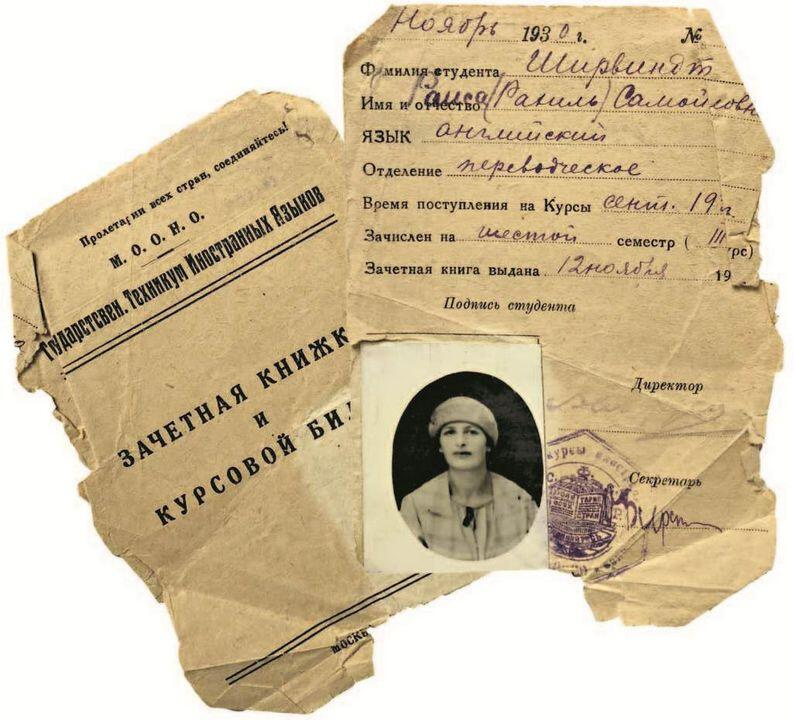 Пролетарии всех стран, соединяйтесь!
М. О. О. Н. О.
Государствен. Техникум Иностранных Языков
ЗАЧЕТНАЯ КНИЖК
И
КУРСОВОЙ БИЛ
МОСКВ
Ноябрь 1930 г. №
Фамилия студента Ширвиндт
Имя и отчество Раиса (Рахиль) Самойловн
ЯЗЫК английский
Отделение переводческое
Время поступления на Курсы сент. 19 г
Зачислен на шестой семестр ( III рс)
Зачетная книга выдана 12 ноября 19
Подпись студента
Директор
Секретарь
курсы иностр